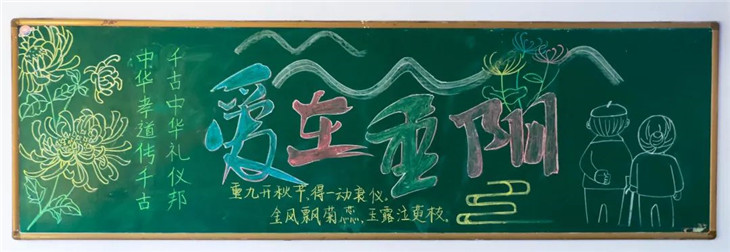 千古中华礼仪邦
中华孝道传千古
爱在重阳
重九开秋节,得一动衮仪。
金风飘菊蕊,玉露泣萸枝.